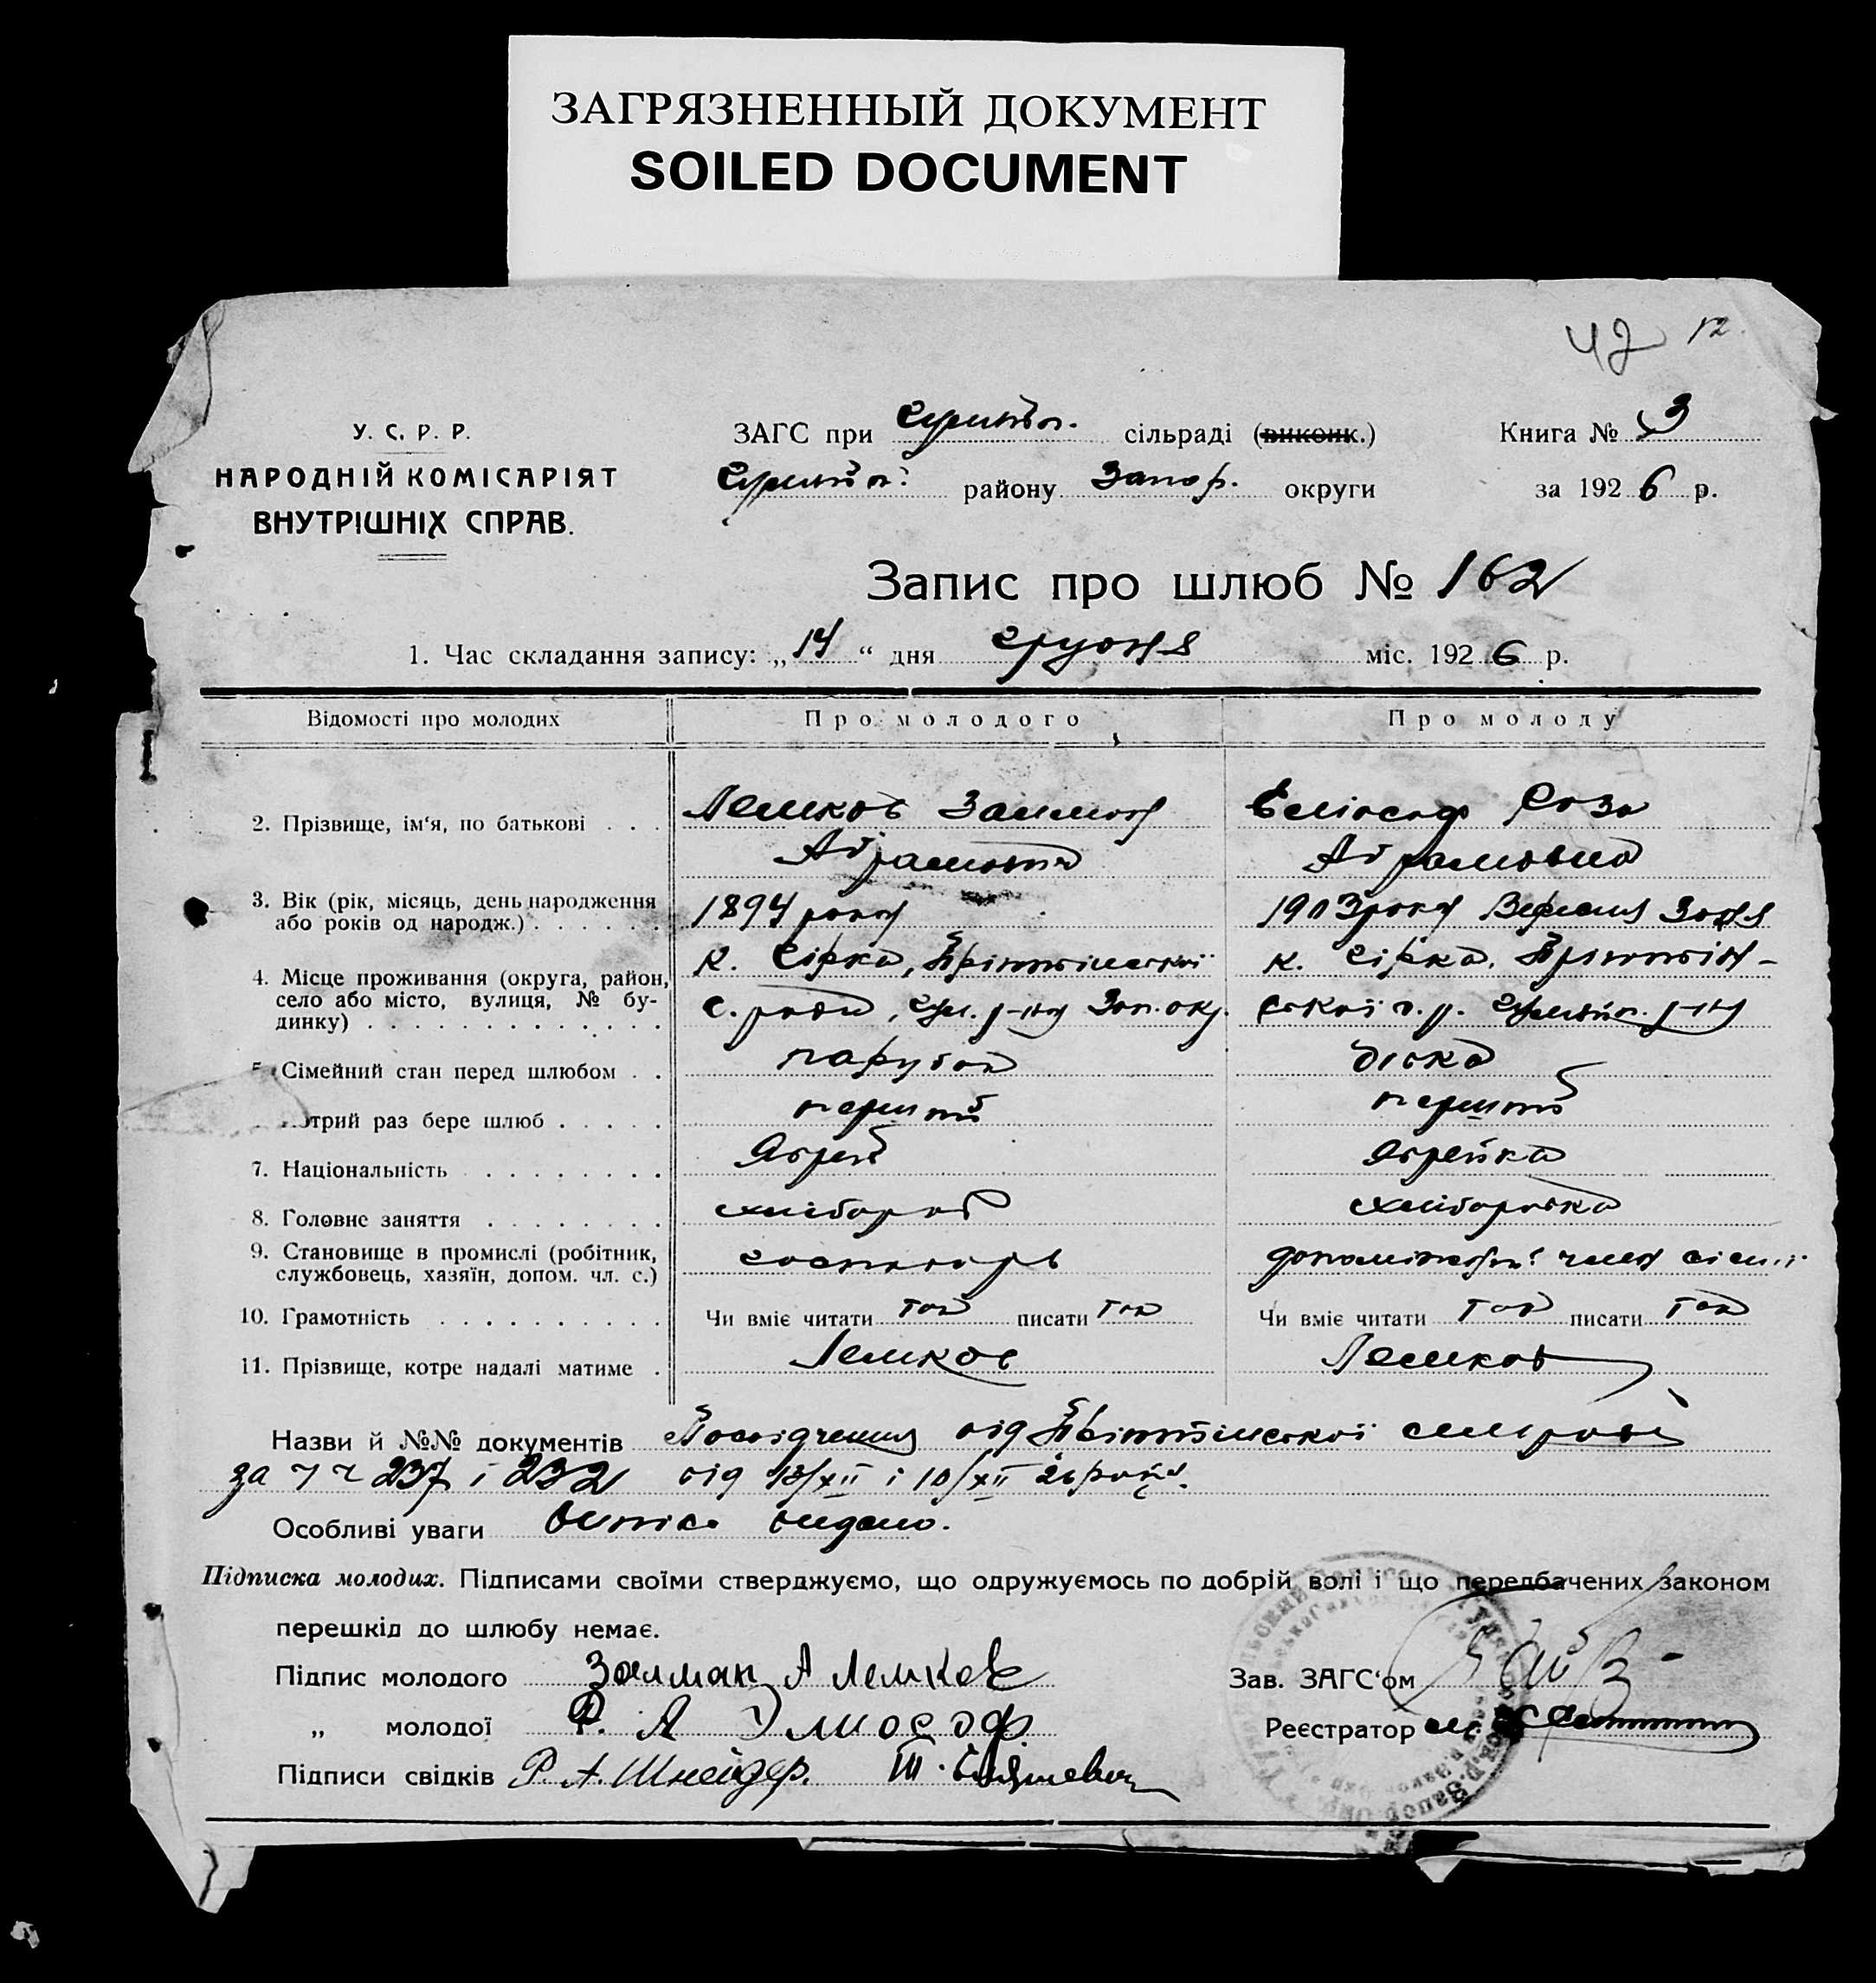 ЗАГРЯЗНЕННЫЙ ДОКУМЕНТ
SOILED DOCUMENT
42 12
У. С. Р. Р.
НАРОДНІЙ КОМІСАРІЯТ
ВНУТРІШНІХ СПРАВ.
ЗАГС при сільраді (виконк.)
району Запор. округи
Книга № 3
за 1926 р.
Запис про шлюб № 162
1. Час складання запису: „14“ дня грудня міс. 1926 р.
Відомості про молодих Про молодого Про молоду
2. Прізвище, ім‘я, по батькові . . . Лемков Залман Еліосаф Роза
Абрамович Абрамовна
3. Вік (рік, місяць, день народження 1894 року 1903 року Вересня 30 дня
або років од народж.) . . . . . .
4. Місце проживання (округа, район, к. Сірка, к. Сірка,
село або місто, вулиця, № бу- с. ради, р-ну Зап. окр. р-ну
динку) . . . . . . . . . . . . .
5. Сімейний стан перед шлюбом . . парубок дівка
отрий раз бере шлюб . . . . . перший перший
7. Національність . . . . . . . . Яврей Яврейка
8. Головне заняття . . . . . . . . хлібороб хліборобка
9. Становище в промислі (робітник, господарь член сімї
службовець, хазяїн, допом. чл. с.)
10. Грамотність . . . . . . . . . . Чи вміє читати так писати так Чи вміє читати так писати так
11. Прізвище, котре надалі матиме . Лемков Лемков
Назви й №№ документів Посвідчення від сільради
за ч ч 237 і 232 від 13/XII і 10/XII 26 року.
Особливі уваги Випис видано.
Підписка молодих. Підписами своїми стверджуємо, що одружуємось по добрій волі і що передбачених законом
перешкід до шлюбу немає.
Підпис молодого Залман А Лемков
„ молодої Р. А Элиософ
Підписи свідків Р. А. Шнейдер.
Зав. ЗАГС‘ом
Реєстратор